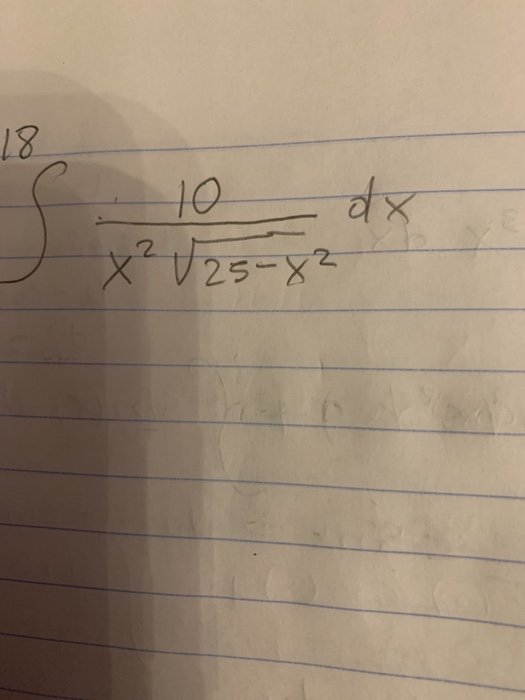 18
∫ 10 / x² √25-x² dx